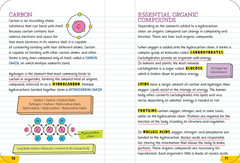 CARBON
Carbon is an incredibly stable
substance that can bond with itself.
Because carbon contains four
valence electrons and space for
four more electrons in its valence shell, it is capable
of consistently bonding with four different atoms. Carbon
is capable of bonding with other carbon atoms, and often
forms a long chain composed only of itself called a CARBON
CHAIN (in which multiple
Hydrogen is the element that most commonly binds to
carbon in organisms, forming the simplest kind of organic
compound, known as a HYDROCARBON. Many
hydrocarbons bonded together form a HYDROCARBON CHAIN.
Carbon + Carbon = Carbon Chain
Hydrogen + Carbon = Hydrocarbon
Hydrocarbon + Hydrocarbon = Hydrocarbon Chain
ESSENTIAL ORGANIC
COMPOUNDS
Depending on the elements added to a hydrocarbon
chain, an organic compound can change in complexity and
function. There are four main organic compounds.
When oxygen is added into the hydrocarbon chain, it forms a
complex group of molecules called CARBOHYDRATES.
Carbohydrates provide an organism with energy.
In humans and plants, the most common
carbohydrate is a sugar known as GLUCOSE,
which is broken down to produce energy.
LIPIDS have a large amount of carbon and hydrogen
that
oxygen (lipids assist in the storage of energy). The human
body often converts carbohydrates into lipids and vice
versa depending on whether energy is needed or not.
PROTEINS contain oxygen, nitrogen, and, in some cases,
sulfur on the hydrocarbon chain. Proteins are required for the
function of the body, including its structure and regulation.
In NUCLEIC ACIDS, oxygen, nitrogen, and phosphorus are
bonded to the hydrocarbon. Nucleic acids are responsible
for storing the information that allows the body to make
proteins. These organic compounds are necessary for
reproduction. Each organism's DNA is made of nucleic acids.